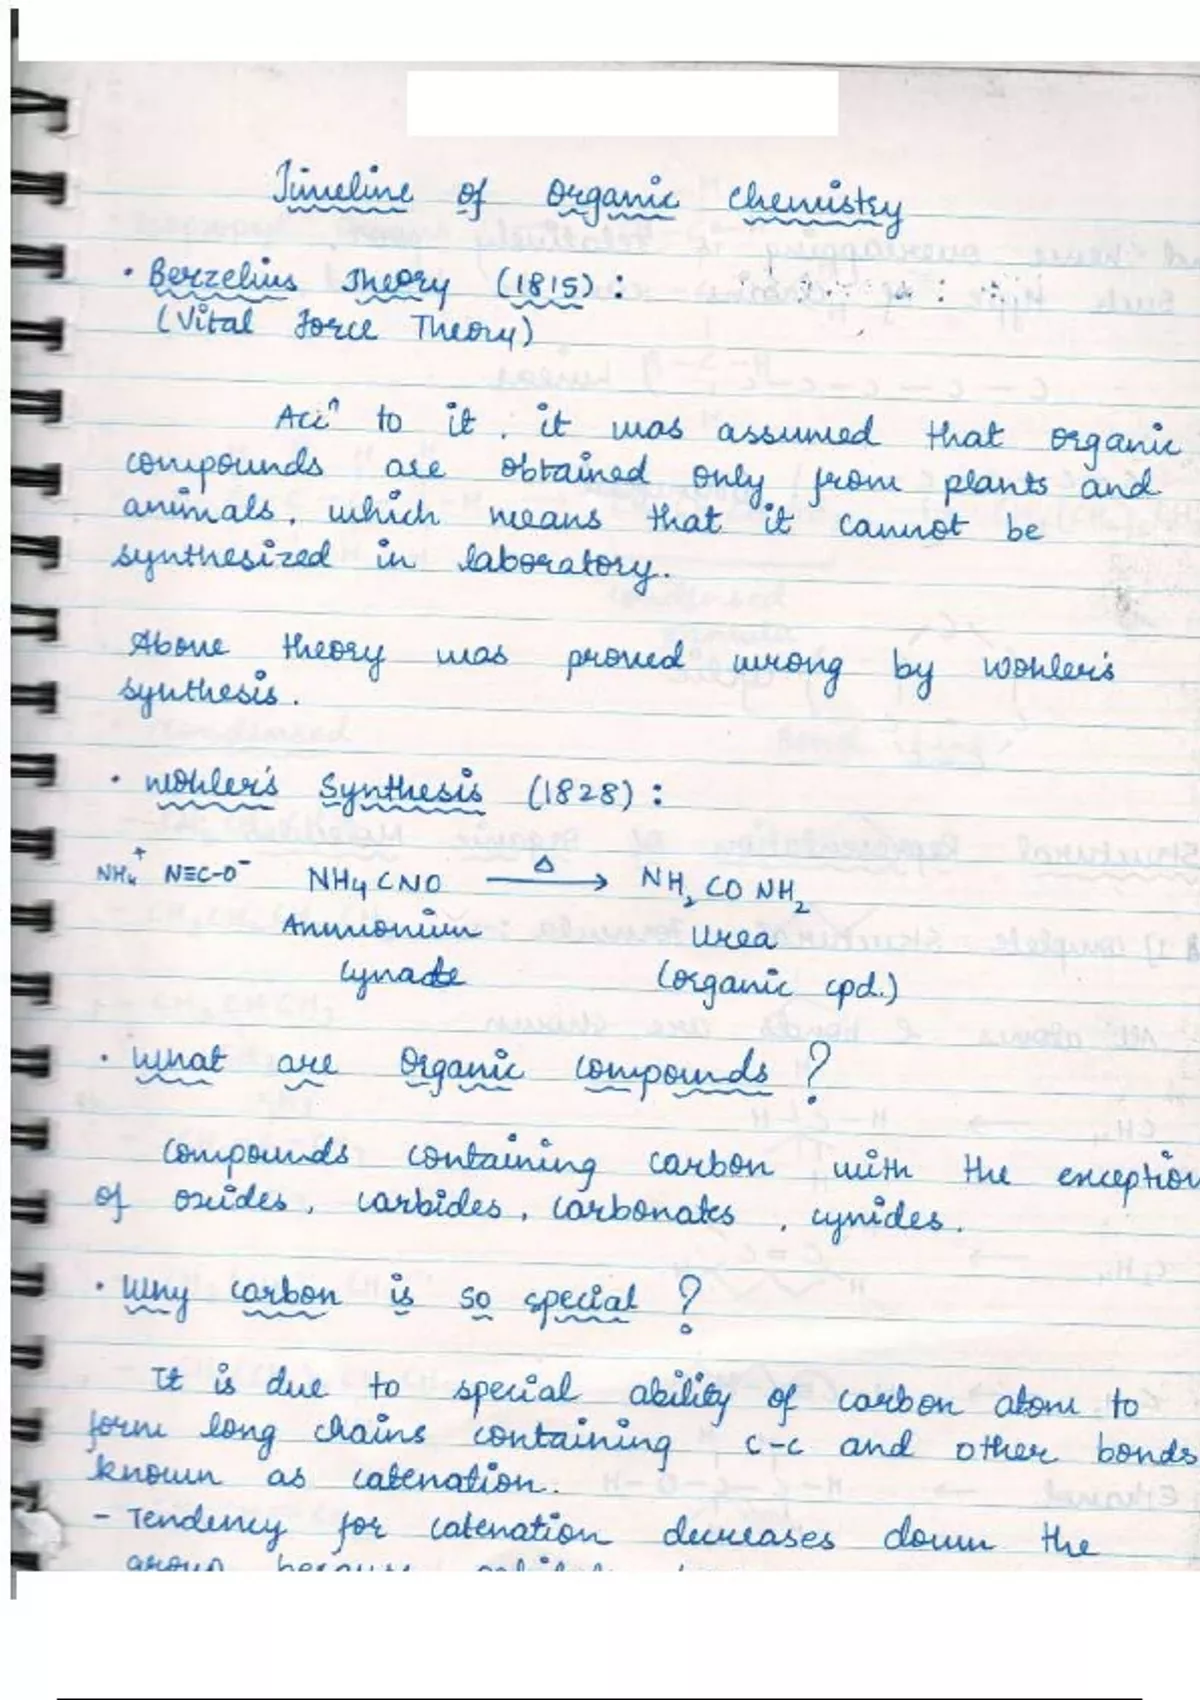 Timeline of Organic Chemistry
• Berzelius Theory (1815) :
(Vital Force Theory)
Accⁿ to it, it was assumed that organic
compounds are obtained only from plants and
animals, which means that it cannot be
synthesized in laboratory.
Above theory was proved wrong by Wohler's
synthesis.
• Wohler's Synthesis (1828) :
NH₄⁺ N≡C-O⁻ NH4CNO —Δ→ NH₂CONH₂
Ammonium Urea
Cynate (organic cpd.)
• What are Organic Compounds ?
Compounds containing carbon with the exception
of oxides, carbides, carbonates, cynides.
• Why carbon is so special ?
It is due to special ability of carbon atom to
form long chains containing C-C and other bonds
known as catenation.
- Tendency for catenation decreases down the
group because